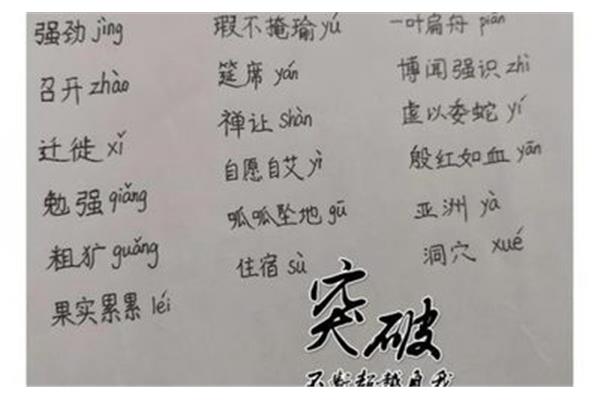 强劲 jìng
召开 zhào
迁徙 xǐ
勉强 qiǎng
粗犷 guǎng
果实累累 léi
瑕不掩瑜 yú
筵席 yán
禅让 shàn
自愿自艾 yì
呱呱坠地 gū
住宿 sù
一叶扁舟 piān
博闻强识 zhì
虚以委蛇 yí
殷红如血 yān
亚洲 yà
洞穴 xué
突破
不断超越自我